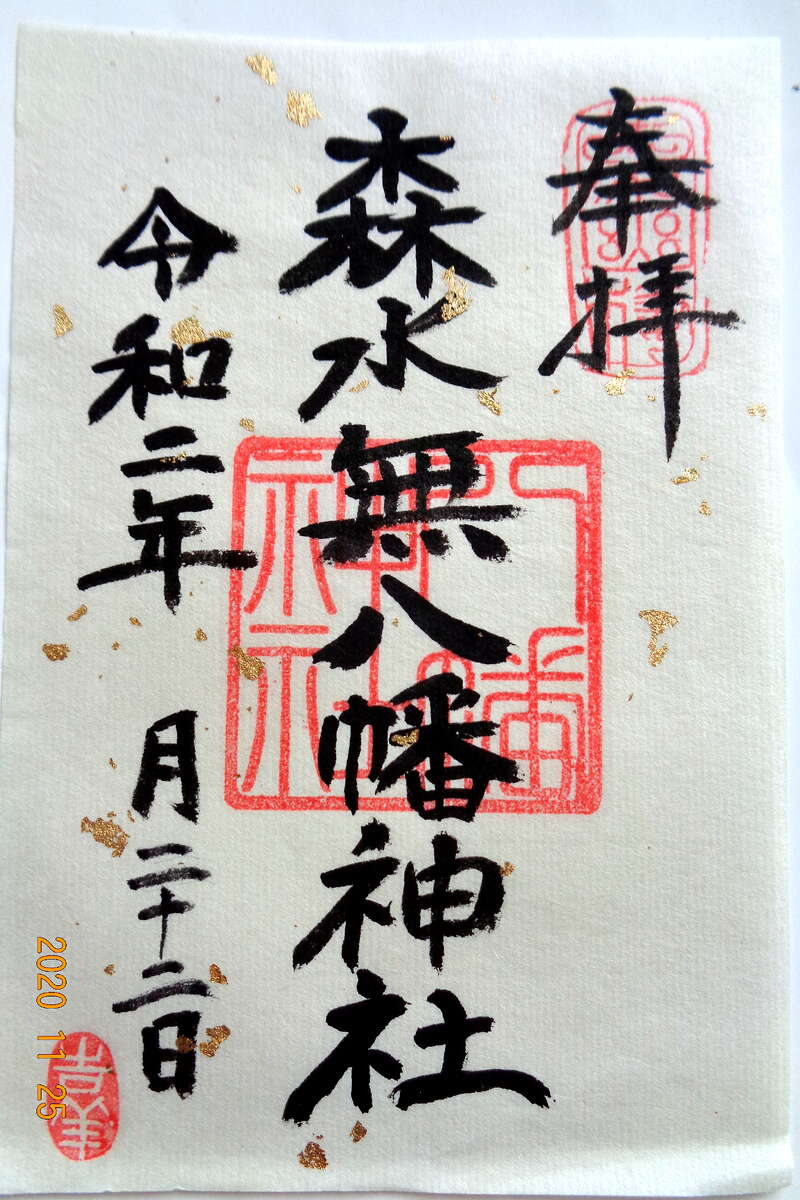 奉拝
森水無八幡神社
令和二年 月二十二日
八幡神社
2020 11 25